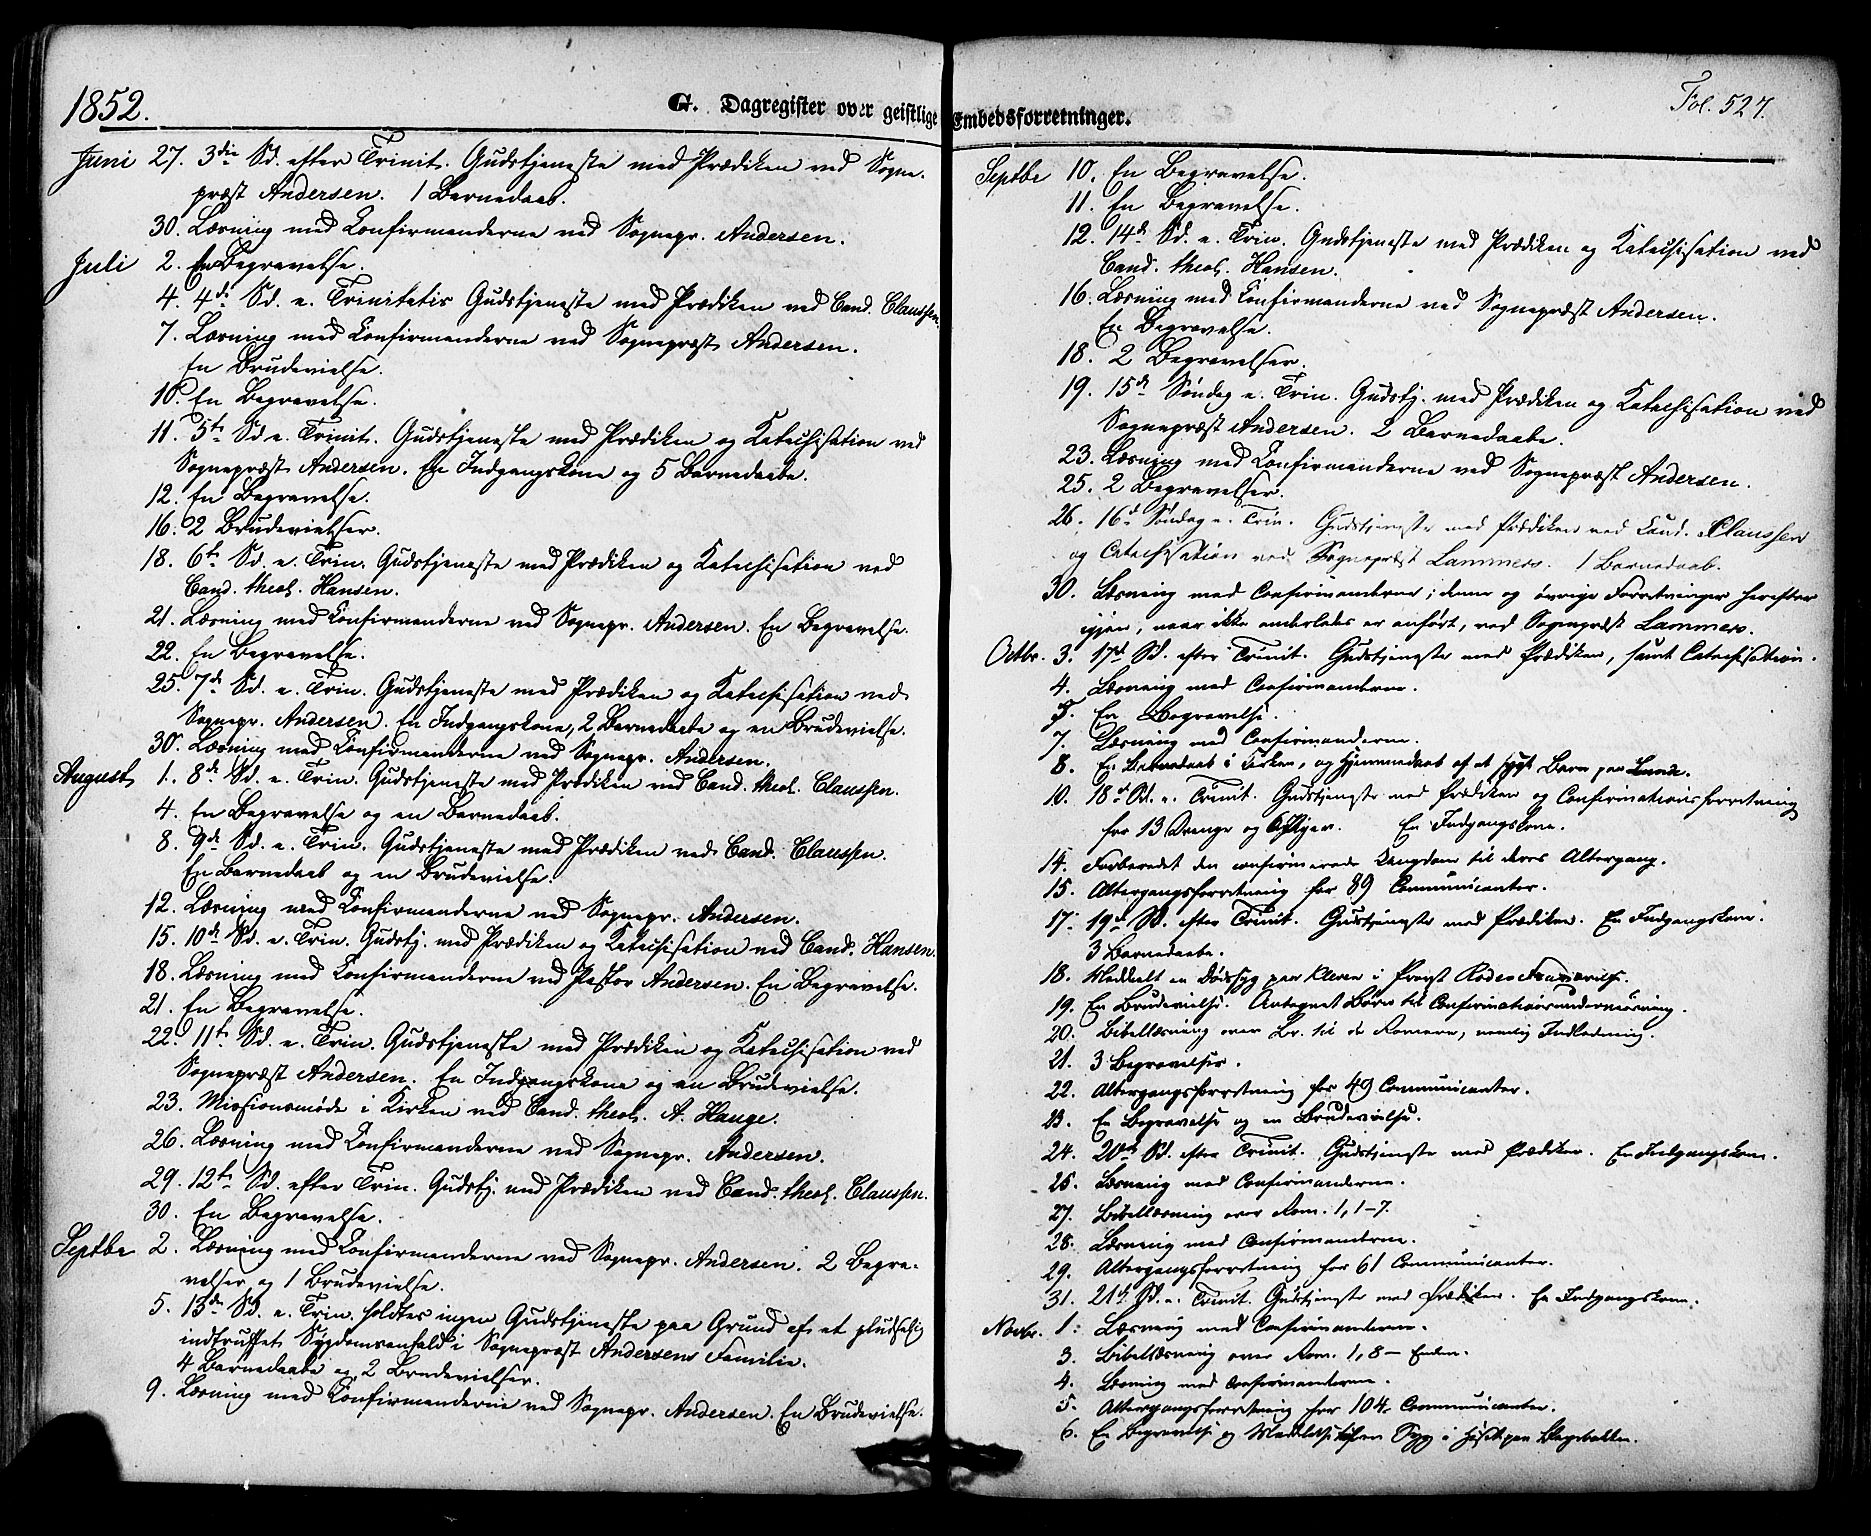 1852.
G. Dagregister over geistlige Embedsforretninger.
Fol. 527.
Juni 27. 3die Sd. efter Trinit. Gudstjeneste med Prædiken ved Sogne-
præst Andersen. 1 Barnedaab.
30. Læsning med Confirmanderne ved Sognepr. Andersen.
Juli 2. En Begravelse.
4. 4de Sd. e. Trinitatis Gudstjeneste med Prædiken ved Cand. Claussen.
7. Læsning med Confirmanderne ved Sognepræst Andersen.
En Brudevielse.
10. En Begravelse.
11. 5te Sd. e. Trinit. Gudstjeneste med Prædiken og Katechisation ved
Sognepræst Andersen. En Indgangskone og 5 Barnedaabe.
12. En Begravelse.
16. 2 Brudevielser.
18. 6te Sd. e. Trin. Gudstjeneste med Prædiken og Katechisation ved
Cand. theol. Hansen.
21. Læsning med Confirmanderne ved Sognepr. Andersen. En Begravelse.
22. En Begravelse.
25. 7de Sd. e. Trin. Gudstjeneste med Prædiken og Katechisation ved
Sognepr. Andersen. En Indgangskone, 2 Barnedaabe og en Brudevielse.
30. Læsning med Confirmanderne ved Sognepr. Andersen.
August 1. 8de Sd. e. Trin. Gudstjeneste med Prædiken ved Cand. theol. Claussen.
4. En Begravelse og en Barnedaab.
8. 9de Sd. e. Trin. Gudstjeneste med Prædiken ved Cand. Claussen.
En Barnedaab og en Brudevielse.
12. Læsning med Confirmanderne ved Sognepr. Andersen.
15. 10de Sd. e. Trin. Gudstj. med Prædiken og Katechisation ved Cand. Hansen.
18. Læsning med Confirmanderne ved Pastor Andersen. En Begravelse.
21. En Begravelse.
22. 11te Sd. e. Trin. Gudstjeneste med Prædiken og Katechisation ved
Sognepræst Andersen. En Indgangskone og en Brudevielse.
23. Missionsmøde i Kirken ved Cand. theol. A. Hauge.
26. Læsning med Confirmanderne ved Sognepr. Andersen.
29. 12te Sd. efter Trin. Gudstj. med Prædiken ved Cand. theol. Claussen.
30. En Begravelse.
Septbr 2. Læsning med Confirmanderne ved Sognepr. Andersen. 2 Begra-
velser og 1 Brudevielse.
5. 13de Sd. e. Trin. holdtes ingen Gudstjeneste paa Grund af et pludselig
indtruffet Sygdomsanfald i Sognepræst Andersens Familie.
4 Barnedaabe og 2 Brudevielser.
9. Læsning med Confirmanderne ved Sognepr. Andersen. En Brudevielse.
Septbr 10. En Begravelse.
11. En Begravelse.
12. 14de Sd. e. Trin. Gudstjeneste med Prædiken og Katechisation ved
Cand. theol. Hansen.
16. Læsning med Confirmanderne ved Sognepræst Andersen.
En Begravelse.
18. 2 Begravelser.
19. 15de Søndag e. Trin. Gudstj. med Prædiken og Katechisation ved
Sognepræst Andersen. 2 Barnedaabe.
23. Læsning med Confirmanderne ved Sognepræst Andersen.
25. 2 Begravelser.
26. 16d Søndag e. Trin. Gudstjeneste med Prædiken ved Cand. Claussen
og Catechisation ved Sognepræst Lammers. 1 Barnedaab.
30. Læsning med Confirmanderne; denne og øvrige Forretninger herefter
igjen, naar ikke anderledes er anført, ved Sognepræst Lammers.
Octbr. 3. 17d Sd. efter Trinit. Gudstjeneste med Prædiken, samt Catechisation.
4. Læsning med Confirmanderne.
5. En Begravelse.
7. Læsning med Confirmanderne.
8. En Barnedaab i Kirken, og Hjemmedaab af et sygt Barn paa Lunde.
10. 18d Sd. e. Trinit. Gudstjeneste med Prædiken og Confirmationsforretning
for 13 Drenge og Piger. En Indgangskone.
14. Forberedet den confirmerede Ungdom til deres Altergang.
15. Altergangsforretning for 89 Communicanter.
17. 19d Sd. efter Trinit. Gudstjeneste med Prædiken. En Indgangskone.
3 Barnedaabe.
18. Meddelt en Dødssyg paa Kleven i Provst Rodes Fraværelse.
19. En Brudevielse. Antegnet Børn til Confirmationsundervisning.
20. Bibellæsning over Br. til de Romere, nemlig Indledning.
21. 3 Begravelser.
22. Altergangsforretning for 49 Communicanter.
23. En Begravelse og en Brudevielse.
24. 20d Sd. efter Trinit. Gudstjeneste med Prædiken. En Indgangskone.
25. Læsning med Confirmanderne.
27. Bibellæsning over Rom. 1, 1-7.
28. Læsning med Confirmanderne.
29. Altergangsforretning for 61 Communicanter.
31. 21d Sd. e. Trinit. Gudstjeneste med Prædiken. En Indgangskone.
Novbr. 1. Læsning med Confirmanderne.
3. Bibellæsning over Rom. 1, 8 - Enden.
4. Læsning med Confirmanderne.
5. Altergangsforretning for 104 Communicanter.
6. En Begravelse og Meddelelse til en Syg i Huset paa